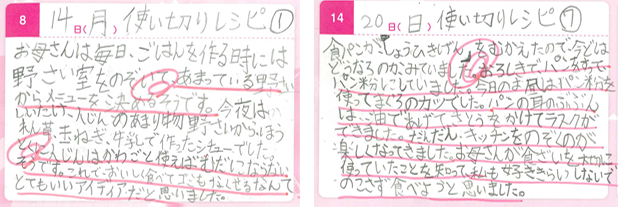 8 14日(月) 使い切りレシピ①
お母さんは毎日、ごはんを作る時には
野さい室をのぞいて、あまっている野さい
からメニューを決めるそうです。今夜は
しいたけ、人じんのあまり物野さいからほう
れん草、玉ねぎ、牛乳で作ったシチューでした。
人じんはかわごと使えばもっとゴミにならない
そうです。これでおいしく食べてゴミもなくせるなんて
とてもいいアイディアだと思いました。
14 20日(日) 使い切りレシピ⑦
食パンがしょうひきげんをむかえたので、今どは
どうなるのかなみていました。おろしきでパンをすって
パン粉にしていました。今日の夕飯はパン粉を
使ってまぐろのカツでした。パンの耳のぶぶん
は、油であげてさとうをかけてラスクが
できました。だんだんキッチンをのぞくのが
楽しくなってきました。お母さんが食べ物を大切に
使っていることを知って私もすききらいしないで
のこさず食べようと思いました。